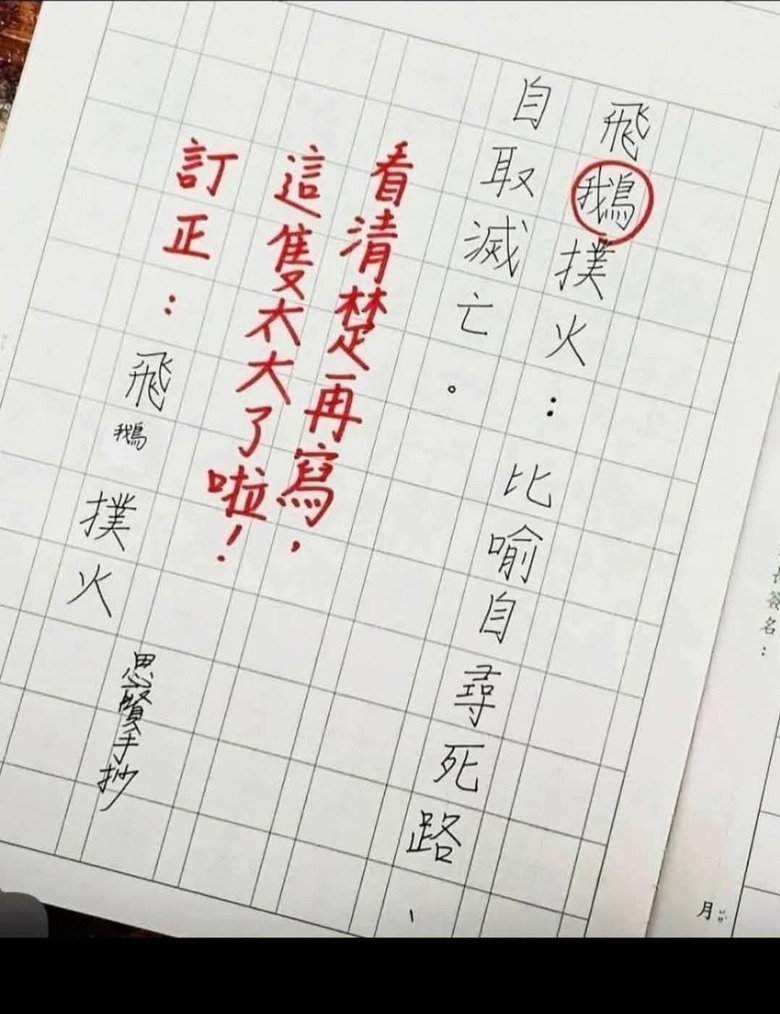 飛鵝撲火：比喻自尋死路、
自取滅亡。
看清楚再寫，
這隻太大了啦！
訂正：飛鵝撲火
思賢手抄
簽名：
月